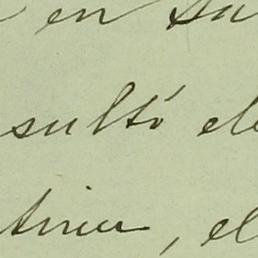 en su
sultó el
tinu, el